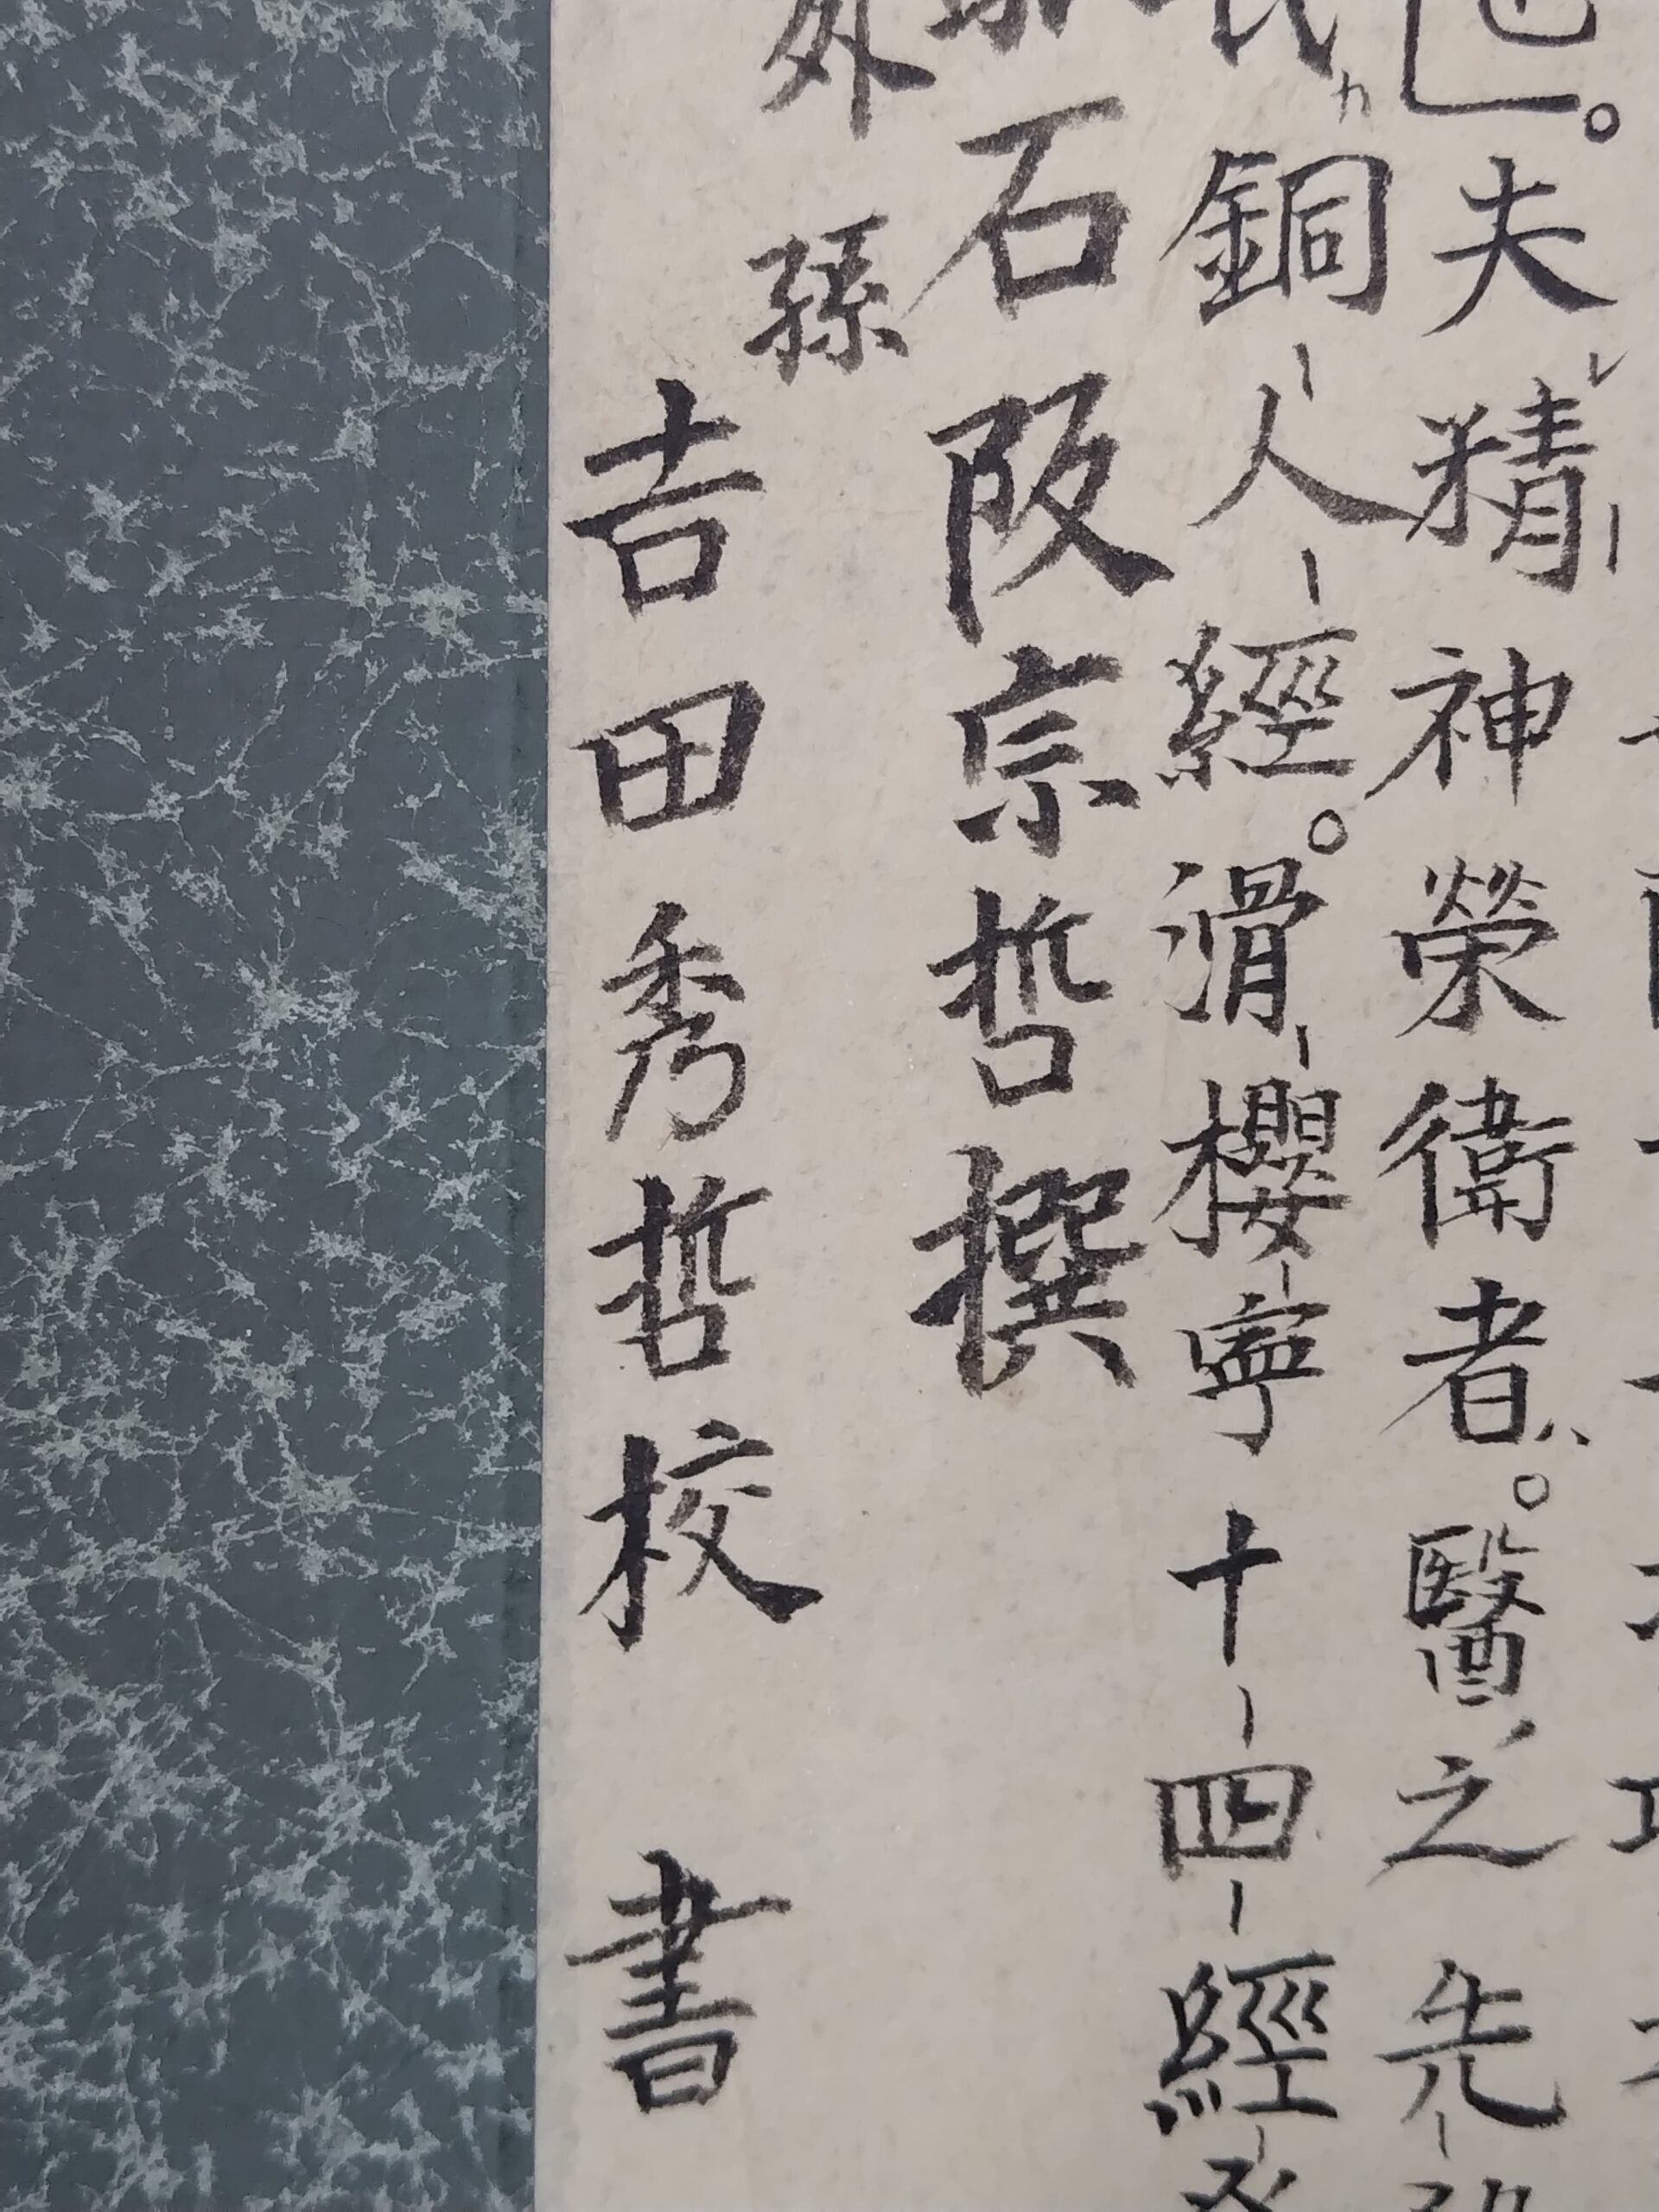 也」。夫精神榮衛者。醫之先
銅人經。滑櫻寧十四經發
石阪宗哲撰
外孫
吉田秀哲校 書